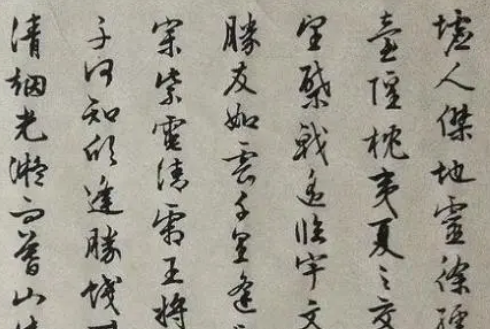 墟人傑地靈徐孺
臺隍枕夷夏之交
望棨戟遥临宇文
勝友如雲千里逢
宗紫電清霜王将
子何知躬逢勝餞
清烟光凝而暮山